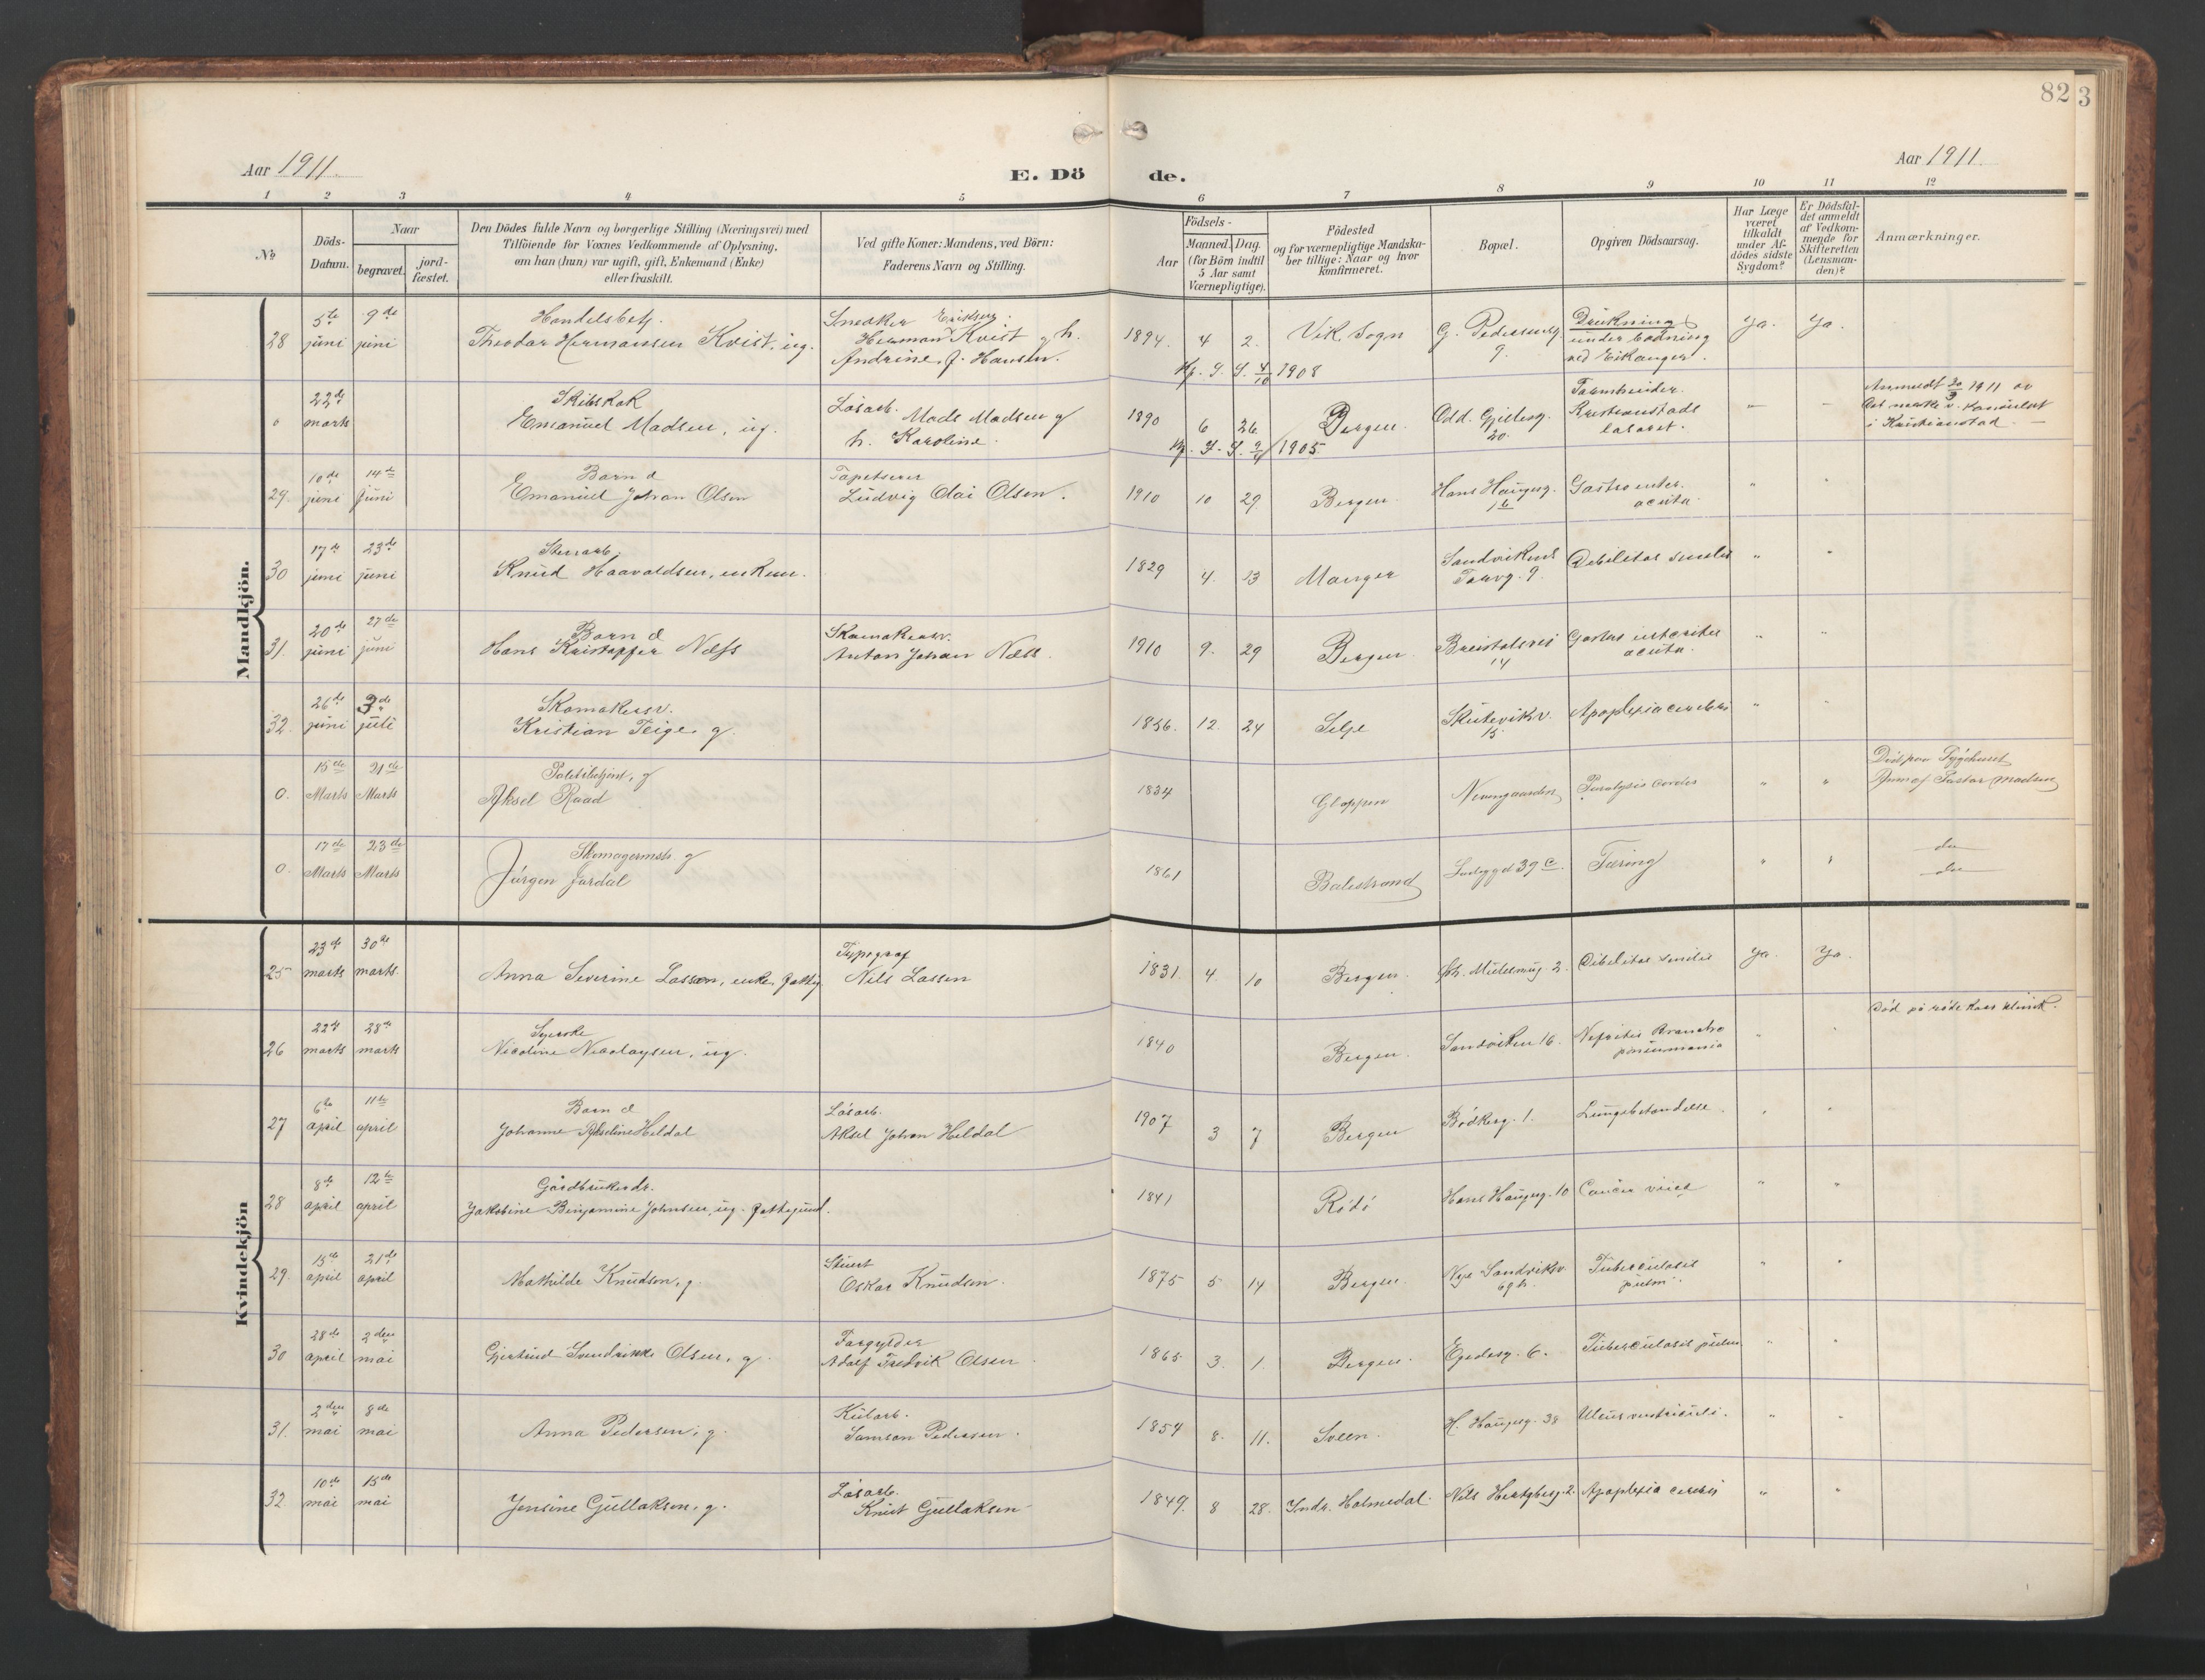 82
3
Aar 1911.
E. Dö
de.
Aar 1911.
1 2 3 4 5 6 7 8 9 10 11 12
No
Döds-
Datum.
Naar
begravet.
jord-
fæstet.
Den Dödes fulde Navn og borgerlige Stilling (Næringsvei) med
Tilföiende for Voxnes Vedkommende af Oplysning,
om han (hun) var ugift, gift, Enkemand (Enke)
eller fraskilt.
Ved gifte Koner: Mandens, ved Börn:
Faderens Navn og Stilling.
Födsels-
Aar
Maaned.
Dag.
(for Börn indtil
5 Aar samt
Værnepligtige).
Födested
og for værnepligtige Mandska-
ber tillige: Naar og hvor
Konfirmeret.
Bopæl.
Opgiven Dödsaarsag.
Har Læge
været
tilkaldt
under Af-
dödes sidste
Sygdom?
Er Dödsfal-
det anmeldt
af Vedkom-
mende for
Skifteretten
(Lensman-
den)?
Anmærkninger.
Mandkjön.
28
5te juni
9de juni
Handelsbetj.
Theodor Hermansen Kvist, ug.
Snedker Eriksen
Herman Kvist og h.
Andrine, f. Hansen.
1894. 4 2.
Vik, Sogn
G. Pedersensg. 9.
Drukning
under badning
ved Eikanger.
Ja. Ja.
1908
0
22de marts
Skibskok
Emanuel Madsen, ug.
Lösarb. Mads Madsen og
h. Karoline.
1890 6 26
Bergen.
Odd. Gjelesg. 20.
Kristianstads
lasaret.
1905
i Kristianstad.
29.
10de juni
14de juni
Barn d
Emanuel Johan Olsen
Tapetserer
Ludvig Olai Olsen.
1910 10 29
Bergen
Hans Haugesg. 16
Gastro enter.
acuta.
30
17de juni
23de juni
Knud Haavaldsen, enkem.
1829 4. 13
Manger
Sandvikens
Torvg. 9.
Debilitas senilis
31.
20de juni
27de juni
Barn d
Hans Kristoffer Næss
Skomakersv.
Anton Johan Næss.
1910 9. 29
Bergen.
Breistølsvei 14
acuta.
32.
26de juni
3de juli
Skomakersv.
Kristian Teige, g.
1856. 12. 24
Selje
Skutevikv. 15.
Apoplexia cerebri
0.
15de Marts
21de Marts
Politibetjent, g
Aksel Raad
1834
Gloppen
Nevengaarden
Paralysis cordis
Död paa Sygehuset
Anm. af Pastor Madsen
0.
17de Marts
23de Marts
Skomagermstr. g
Jørgen Jordal
1861
Balestrand
Ladeggd 39 c.
Tæring
do
do
Kvindekjön
25
23de marts
30te marts.
Anna Severine Lassen, enke, fattig
Typograf
Nils Lassen
1831. 4. 10
Bergen.
2.
Debilitas senilis
Ja. Ja.
26
22de marts
28de marts
Syerske
Nicoline Nicolaysen, ug.
1840
Bergen.
Sandviken 16.
Nefritis Broncho
pneumonia
Död på röde kors klinik.
27
6te april
11te april
Barn d
Johanne Akseline Heldal
Lösarb.
Aksel Johan Heldal
1907 3 7
Bergen
Bödkerg. 1.
Lungebetændelse.
28
8de april
12te april
Gårdbrukerdr.
Jakobine Benjamine Johnsen, ug. fattigund.
1841
Rödö
Hans Haugesg. 10
29.
15de april
21de april
Mathilde Knudsen, g.
Stuert
Oskar Knudsen.
1875 5 14
Bergen.
Nye Sandviksv. 69 b.
Tuberculosis
pulm.
30
28de april
2den mai
Gjertrud Sundrikke Olsen, g.
Forgylder
Adolf Fredrik Olsen
1865 3. 1.
Bergen.
Egedesg. 6.
Tuberculosis pulm.
31.
2den mai
8de mai
Anna Pedersen, g.
Kularb.
Samson Pedersen.
1854 8. 11.
Sveen.
H. Haugesg. 38
Ulcus ventriculi.
32
10de mai
15de mai
Jensine Gullaksen, g.
Lösarb.
Knut Gullaksen
1849. 8 28.
Indr. Holmedal.
Nils Hertzbergg. 2.
Apoplexia cerebri